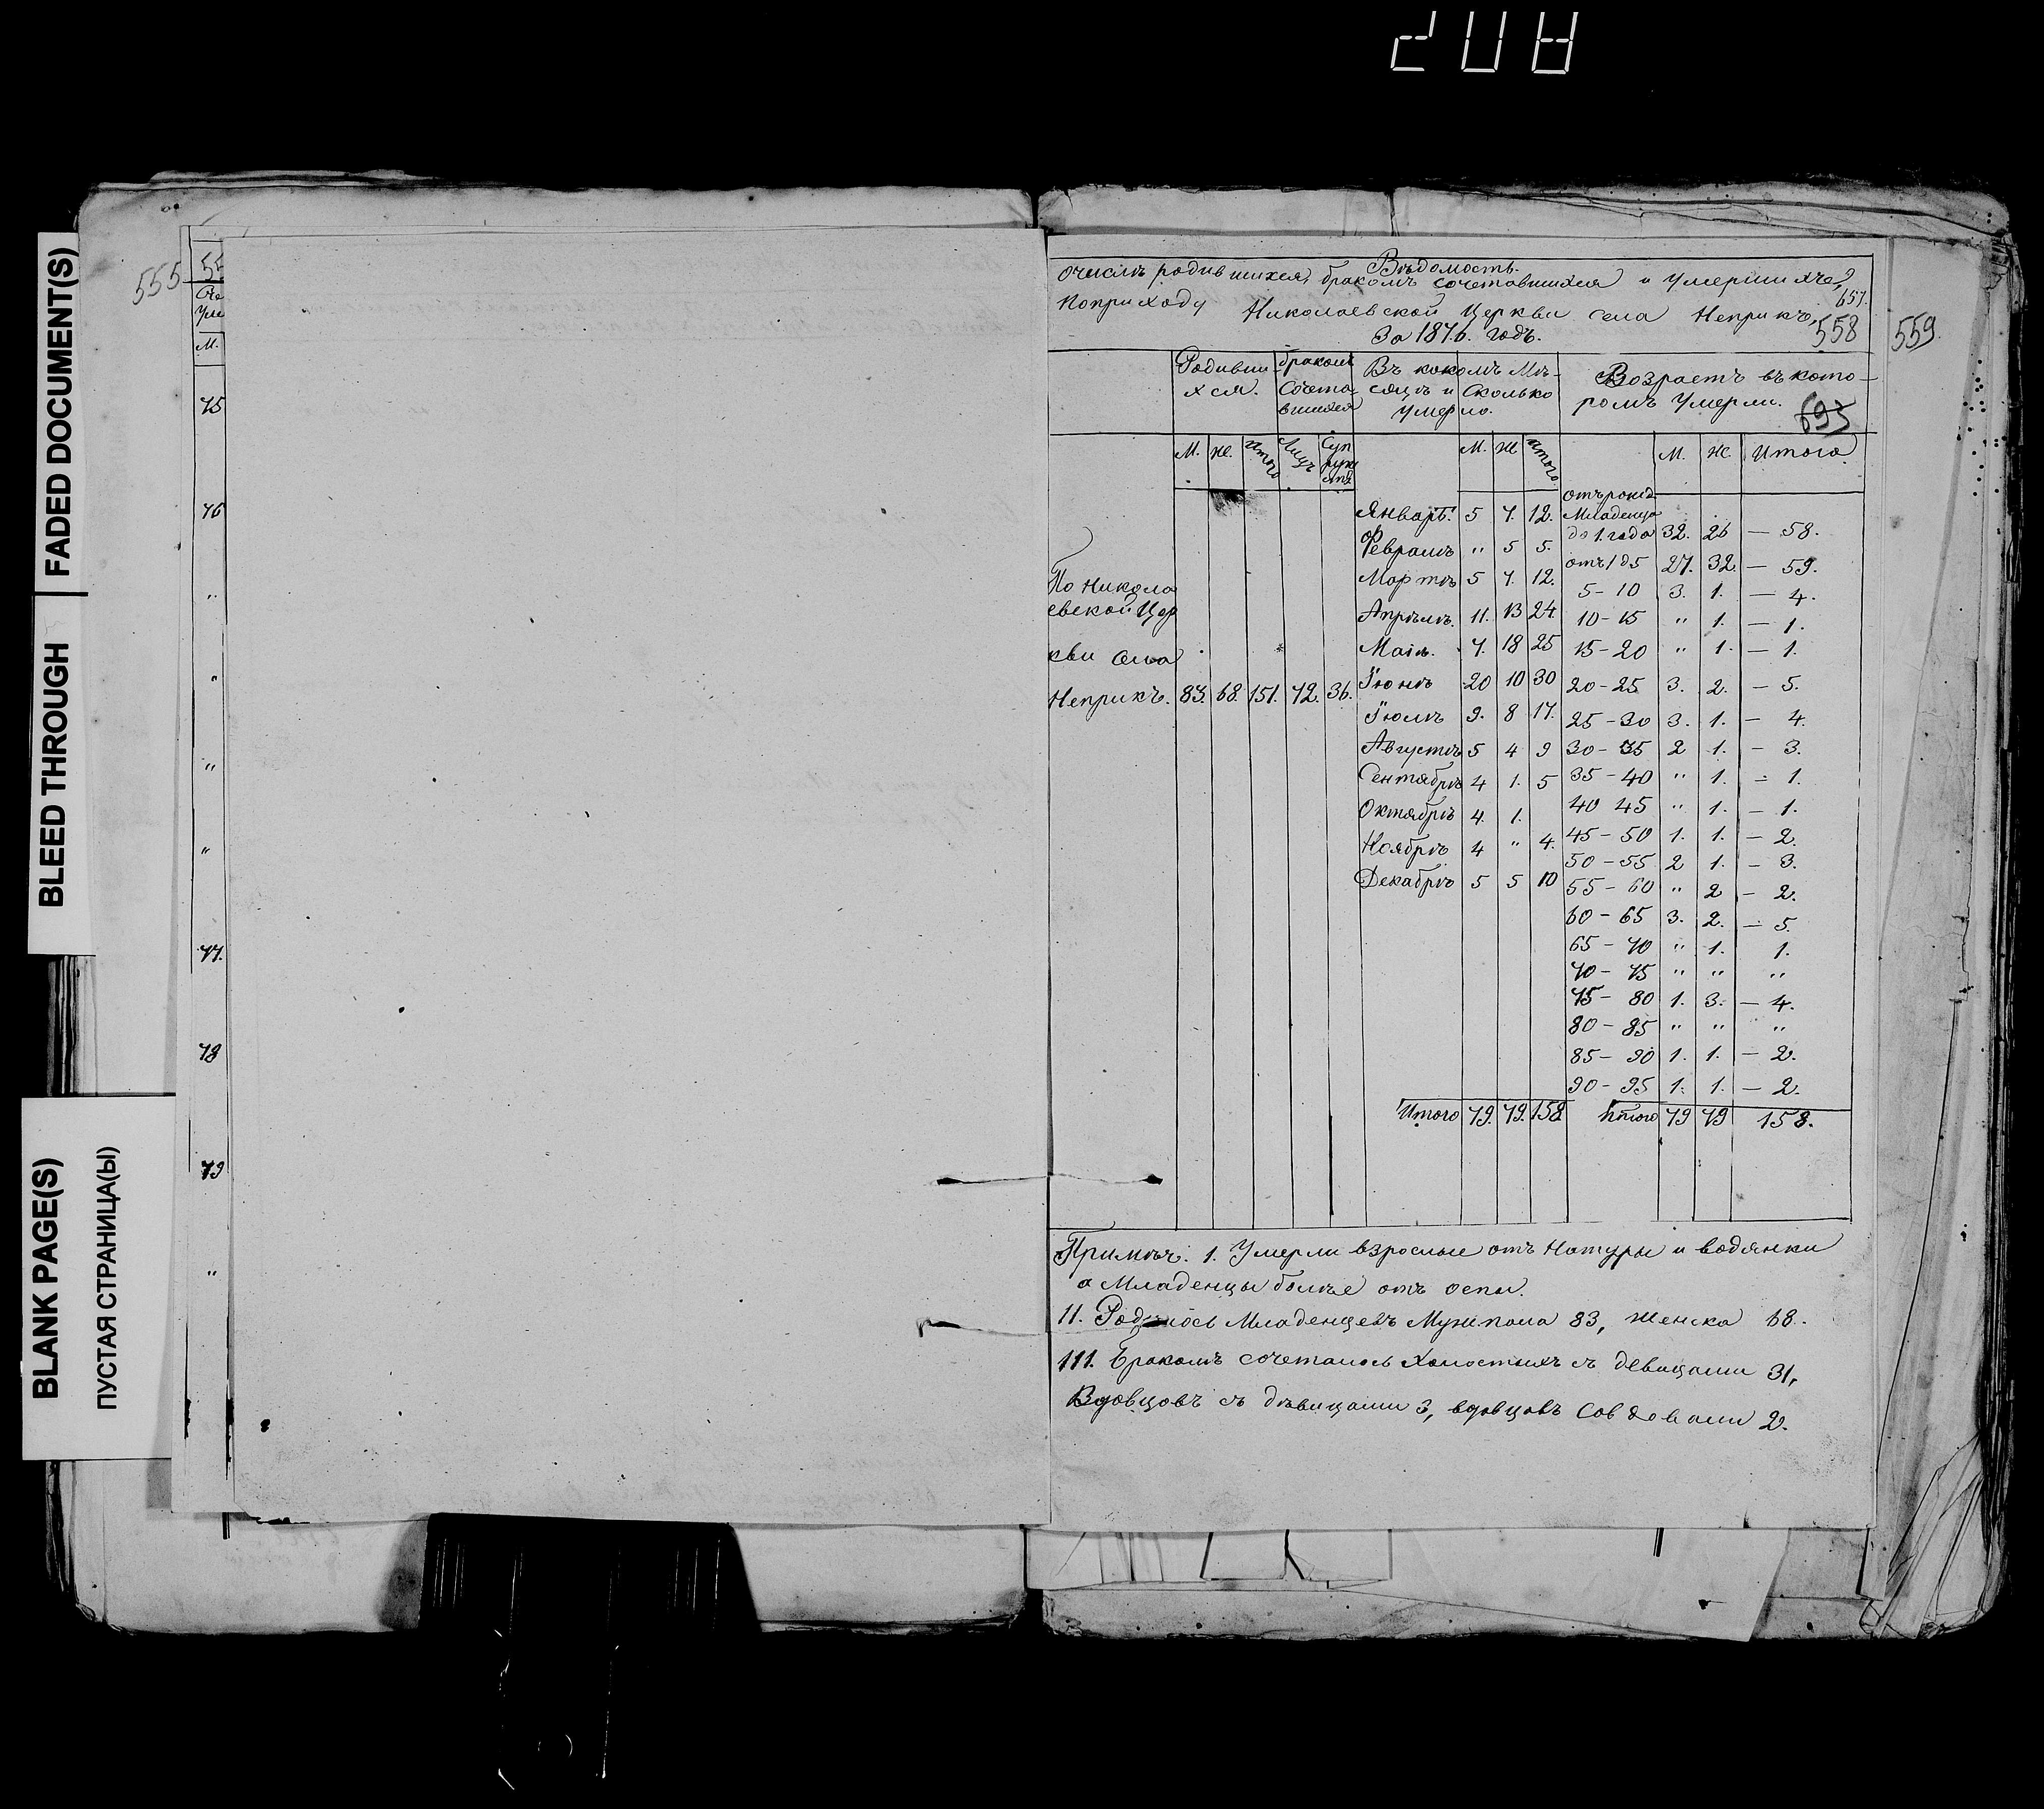 208
FADED DOCUMENT(S)
BLEED THROUGH
BLANK PAGE(S)
ПУСТАЯ СТРАНИЦА(Ы)
555
М.
75
76
"
"
"
"
77.
78
79
"
Вѣдомость.
о числѣ родившихся, бракомъ сочетавшихся и умершихъ,
по приходу Николаевской Церкви села Неприкъ,
За 1876. годъ.
657.
558
559
693
Родивши- | бракомъ | Въ какомъ Мѣ- | Возрастъ въ кото-
хся. | Сочета | сяцѣ и Сколько | ромъ умерли.
вшихся | умерло.
М. | Ж. | Итого | Лицъ | Супружествъ | М. | Ж | Итого | М. | Ж. | Итого
По Никола
евской Цер
кви села
Неприкъ. | 83. | 68. | 151. | 72. | 36.
Январѣ. | 5 | 7. | 12.
Февралѣ | " | 5 | 5.
Мартѣ | 5 | 7. | 12.
Апрѣлѣ. | 11. | 13 | 24.
Маiѣ. | 7. | 18 | 25
Iюнѣ | 20 | 10 | 30
Iюлѣ | 9. | 8 | 17.
Августѣ | 5 | 4 | 9
Сентябрѣ | 4 | 1. | 5
Октябрѣ | 4. | 1.
Ноябрѣ | 4 | " | 4.
Декабрѣ | 5 | 5 | 10
Итого | 79. | 79. | 158.
отъ рожд.
Младенца
до 1. года | 32. | 26 | — 58.
отъ 1 д 5 | 27. | 32. | — 59.
5 - 10 | 3. | 1. | — 4.
10 - 15 | " | 1. | — 1.
15 - 20 | " | 1. | — 1.
20 - 25 | 3. | 2. | — 5.
25 - 30 | 3. | 1. | — 4.
30 - 35 | 2 | 1. | — 3.
35 - 40 | " | 1. | - 1.
40 45 | " | 1. | — 1.
45 - 50 | 1. | 1. | — 2.
50 - 55 | 2 | 1. | — 3.
55 - 60 | " | 2 | — 2.
60 - 65 | 3. | 2. | — 5.
65 - 70 | " | 1. | 1.
70 - 75 | " | " | "
75 - 80 | 1. | 3. | — 4.
80 - 85 | " | " | "
85 - 90 | 1. | 1. | — 2.
90 - 95 | 1. | 1. | — 2.
Итого | 79 | 79 | 158.
Примѣч. 1. Умерли взрослые отъ Натуры и водянки
а Младенцы болѣе отъ оспы.
11. Родилось Младенцевъ Муж пола 83, Женска 68.
111. Бракомъ сочеталось Холостыхъ съ девицами 31,
Вдовцовъ съ дѣвицами 3, вдовцовъ со вдовами 2.